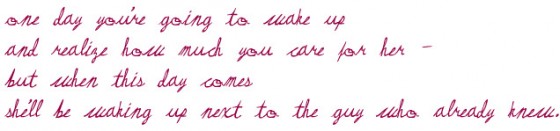 one day you're going to wake up
and realize how much you care for her -
but when this day comes
she'll be waking up next to the guy who already knew.